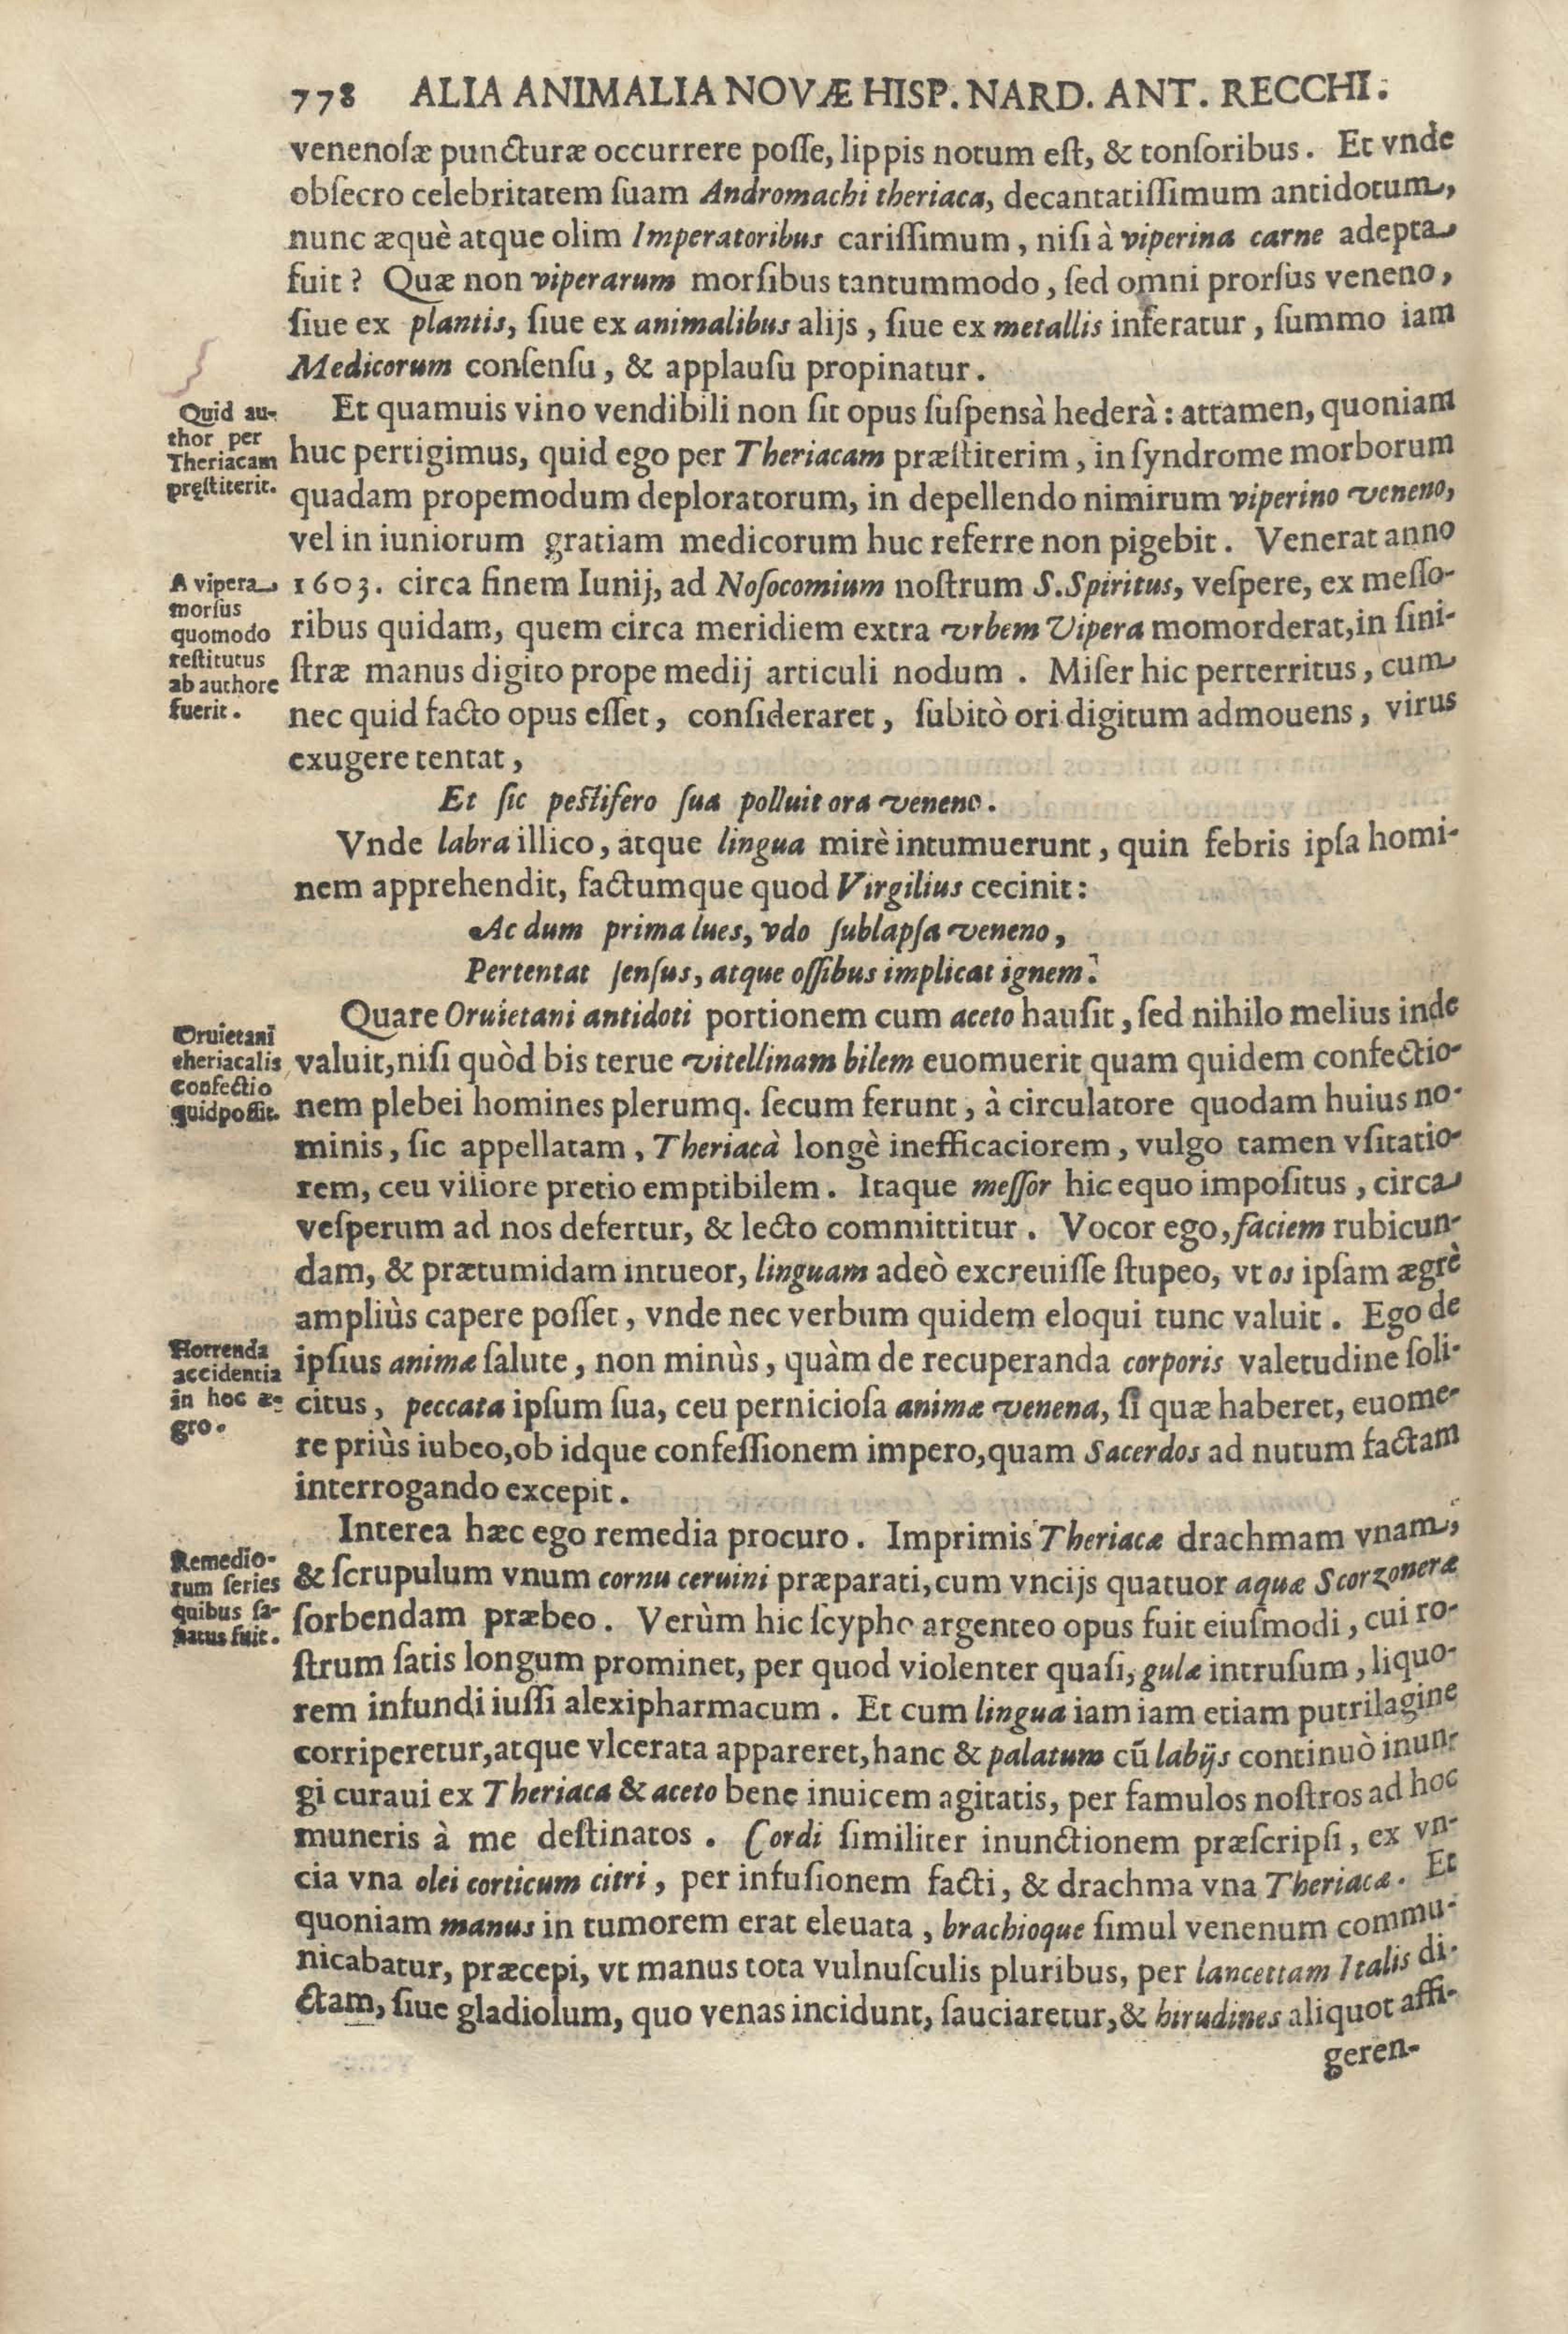 778 ALIA ANIMALIA NOVÆ HISP. NARD. ANT. RECCHI.
venenoſæ puncturæ occurrere poſſe, lippis notum eſt, & tonſoribus. Et vnde
obſecro celebritatem ſuam Andromachi theriaca, decantatiſſimum antidotum,
nunc æquè atque olim Imperatoribus cariſſimum, niſi à viperina carne adepta
fuit? Quæ non viperarum morſibus tantummodo, ſed omni prorſus veneno,
ſiue ex plantis, ſiue ex animalibus alijs, ſiue ex metallis inferatur, ſummo iam
Medicorum conſenſu, & applauſu propinatur.
Quid au-
thor per
Theriacam
pręſtiterit.
Et quamuis vino vendibili non ſit opus ſuſpensà hederà: attamen, quoniam
huc pertigimus, quid ego per Theriacam præſtiterim, in ſyndrome morborum
quadam propemodum deploratorum, in depellendo nimirum viperino veneno,
vel in iuniorum gratiam medicorum huc referre non pigebit. Venerat anno
A vipera
morſus
quomodo
reſtitutus
ab authore
fuerit.
1603. circa finem Iunij, ad Noſocomium noſtrum S. Spiritus, veſpere, ex meſſo-
ribus quidam, quem circa meridiem extra vrbem Vipera momorderat, in ſini-
ſtræ manus digito prope medij articuli nodum. Miſer hic perterritus, cum
nec quid facto opus eſſet, conſideraret, ſubitò ori digitum admouens, virus
exugere tentat,
Et ſic peſtifero ſua polluit ora veneno.
Vnde labra illico, atque lingua mirè intumuerunt, quin febris ipſa homi-
nem apprehendit, factumque quod Virgilius cecinit:
Ac dum prima lues, vdo ſublapſa veneno,
Pertentat ſenſus, atque oſſibus implicat ignem.
Oruietani
theriacalis
confectio
quid poſſit.
Quare Oruietani antidoti portionem cum aceto hauſit, ſed nihilo melius inde
valuit, niſi quòd bis terue vitellinam bilem euomuerit quam quidem confectio-
nem plebei homines plerumq. ſecum ferunt, à circulatore quodam huius no-
minis, ſic appellatam, Theriacà longè inefficaciorem, vulgo tamen vſitatio-
rem, ceu viliore pretio emptibilem. Itaque meſſor hic equo impoſitus, circa
veſperum ad nos defertur, & lecto committitur. Vocor ego, faciem rubicun-
dam, & prætumidam intueor, linguam adeò excreuiſſe ſtupeo, vt os ipſam ægrè
ampliùs capere poſſet, vnde nec verbum quidem eloqui tunc valuit. Ego de
Horrenda
accidentia
in hoc æ-
gro.
ipſius animæ ſalute, non minùs, quàm de recuperanda corporis valetudine ſoli-
citus, peccata ipſum ſua, ceu pernicioſa animæ venena, ſi quæ haberet, euome-
re priùs iubeo, ob idque confeſſionem impero, quam Sacerdos ad nutum factam
interrogando excepit.
Remedio-
rum ſeries
quibus ſa-
natus fuit.
Interea hæc ego remedia procuro. Imprimis Theriacæ drachmam vnam,
& ſcrupulum vnum cornu ceruini præparati, cum vncijs quatuor aquæ Scorzoneræ
ſorbendam præbeo. Verùm hic ſcypho argenteo opus fuit eiuſmodi, cui ro-
ſtrum ſatis longum prominet, per quod violenter quaſi, gulæ intruſum, liquo-
rem infundi iuſſi alexipharmacum. Et cum lingua iam iam etiam putrilagine
corriperetur, atque vlcerata appareret, hanc & palatum cū labijs continuò inun-
gi curaui ex Theriaca & aceto bene inuicem agitatis, per famulos noſtros ad hoc
muneris à me deſtinatos. Cordi ſimiliter inunctionem præſcripſi, ex vn-
cia vna olei corticum citri, per infuſionem facti, & drachma vna Theriacæ. Et
quoniam manus in tumorem erat eleuata, brachioque ſimul venenum commu-
nicabatur, præcepi, vt manus tota vulnuſculis pluribus, per lancettam Italis di-
ctam, ſiue gladiolum, quo venas incidunt, ſauciaretur, & hirudines aliquot affi-
geren-